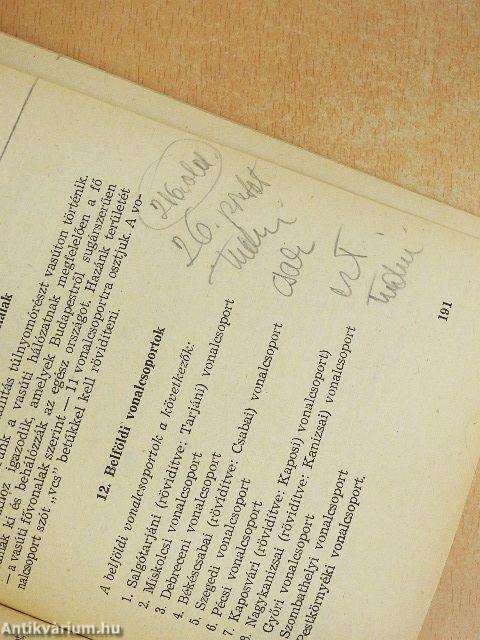 216. old.
26. pontot
tudni
csai
ezt
tudni.
alak
llítás túlnyomórészt vasúton történik.
unk a vasúti hálózatnak megfelelően a fő
hoz igazodik, amelyek Budapestről sugárszerűen
nak ki és behálózzák az egész országot. Hazánk területét
— a vasúti fővonalak szerint — 11 vonalcsoportra osztjuk. A vo-
nalcsoport szót „vcs" betűkkel kell rövidíteni.
12. Belföldi vonalcsoportok
A belföldi vonalcsoportok a következők:
1. Salgótarjáni (rövidítve: Tarjáni) vonalcsoport
2. Miskolci vonalcsoport
3. Debreceni vonalcsoport
4. Békéscsabai (rövidítve: Csabai) vonalcsoport
5. Szegedi vonalcsoport
6. Pécsi vonalcsoport
7. Kaposvári (rövidítve: Kaposi) vonalcsoport)
8. Nagykanizsai (rövidítve: Kanizsai) vonalcsoport
Győri vonalcsoport
Szombathelyi vonalcsoport
Pestkörnyéki vonalcsoport.
191
Antikvárium.hu